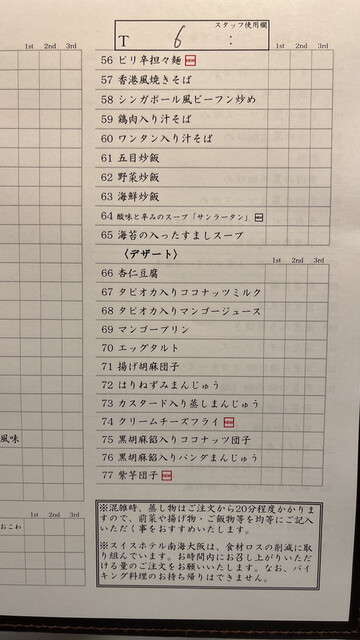 スタッフ使用欄
T 6 :
1st 2nd 3rd
1st 2nd 3rd
56 ピリ辛担々麺 NEW
57 香港風焼きそば
58 シンガポール風ビーフン炒め
59 鶏肉入り汁そば
60 ワンタン入り汁そば
61 五目炒飯
62 野菜炒飯
63 海鮮炒飯
64 酸味と辛みのスープ「サンラータン」 NEW
65 海苔の入ったすましスープ
〈デザート〉
1st 2nd 3rd
66 杏仁豆腐
67 タピオカ入りココナッツミルク
68 タピオカ入りマンゴージュース
69 マンゴープリン
70 エッグタルト
71 揚げ胡麻団子
72 はりねずみまんじゅう
73 カスタード入り蒸しまんじゅう
74 クリームチーズフライ NEW
75 黒胡麻餡入りココナッツ団子
76 黒胡麻餡入りパンダまんじゅう
77 紫芋団子 NEW
風味
1st 2nd 3rd
おこわ
※混雑時、蒸し物はご注文から20分程度かかりま
すので、前菜や揚げ物・ご飯物等を均等にご記入
いただく事をおすすめいたします。
※スイスホテル南海大阪は、食材ロスの削減に取
り組んでいます。お時間内にお召し上がりいただ
ける量のご注文をお願いいたします。なお、バイ
キング料理のお持ち帰りはできません。